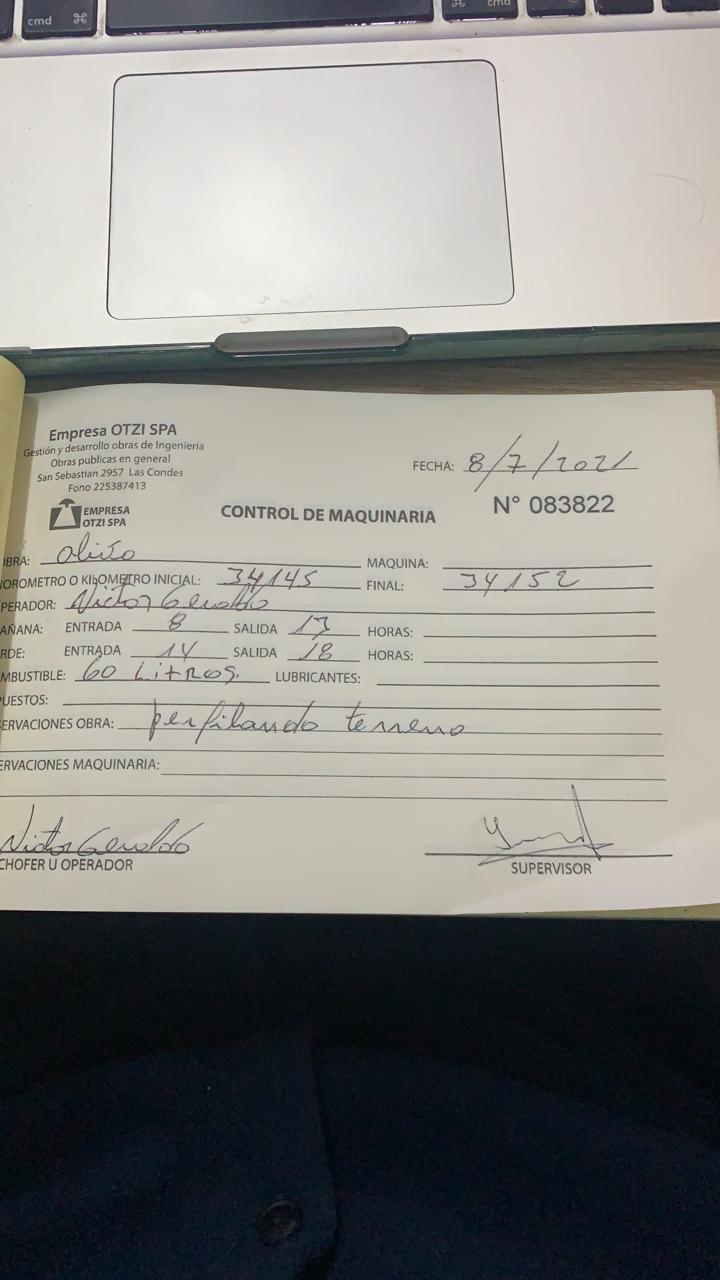 cmd ⌘
⌘ cmd
Empresa OTZI SPA
Gestión y desarrollo obras de Ingenieria
Obras publicas en general
San Sebastian 2957 Las Condes
Fono 225387413
FECHA: 8/7/2021
EMPRESA
OTZI SPA
CONTROL DE MAQUINARIA
N° 083822
OBRA: MAQUINA:
HOROMETRO O KILOMETRO INICIAL: 34145 FINAL: 34152
OPERADOR: Victor Geraldo
MAÑANA: ENTRADA 8 SALIDA 13 HORAS:
RDE: ENTRADA 14 SALIDA 18 HORAS:
MBUSTIBLE: 60 Litros. LUBRICANTES:
PUESTOS:
ERVACIONES OBRA: perfilando terreno
ERVACIONES MAQUINARIA:
Victor Geraldo
CHOFER U OPERADOR
SUPERVISOR